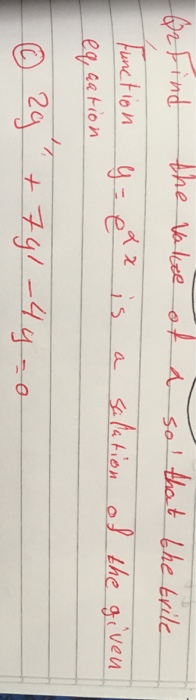 Q2 Find the value of α so that the
function y = e^αx is a solution of the given
eqaation
Ⓒ 2y'' + 7y' - 4y = 0